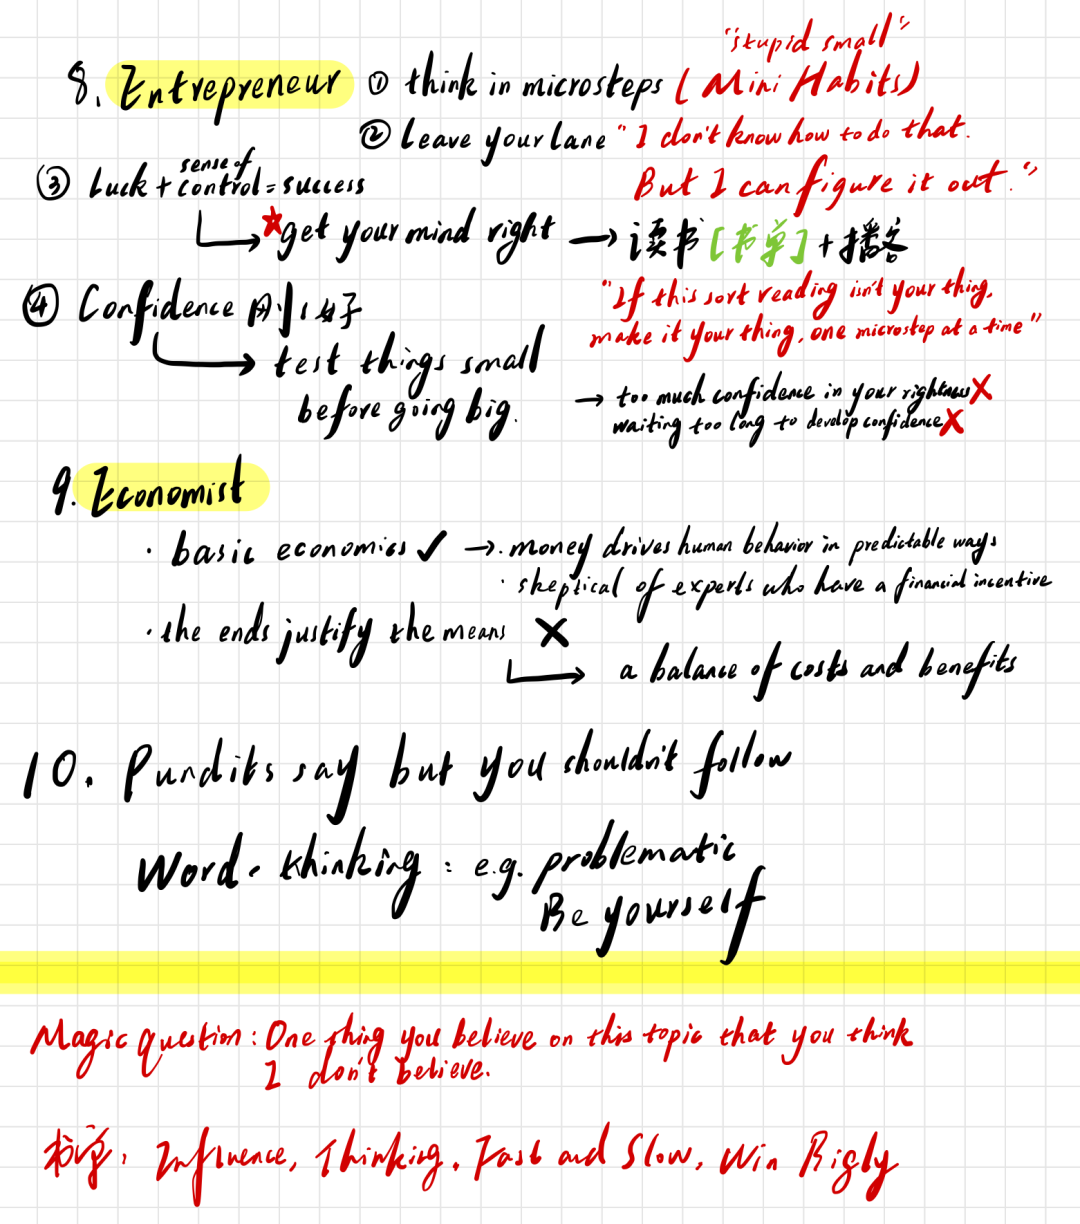 "stupid small"
8. Entrepreneur ① think in microsteps (Mini Habits)
② Leave your lane "I don't know how to do that.
But I can figure it out."
③ luck + sense of control = success
★get your mind right → 读书[书单]+播客
④ Confidence 刚好
"If this sort reading isn't your thing,
make it your thing, one microstep at a time"
→ test things small
before going big.
→ too much confidence in your rightness X
waiting too long to develop confidence X
9. Economist
· basic economics ✓ → · money drives human behavior in predictable ways
· skeptical of experts who have a financial incentive
· the ends justify the means X
→ a balance of costs and benefits
10. Pundits say but you shouldn't follow
Word-thinking : e.g. problematic
Be yourself
Magic question: One thing you believe on this topic that you think
I don't believe.
书单: Influence, Thinking, Fast and Slow, Win Bigly